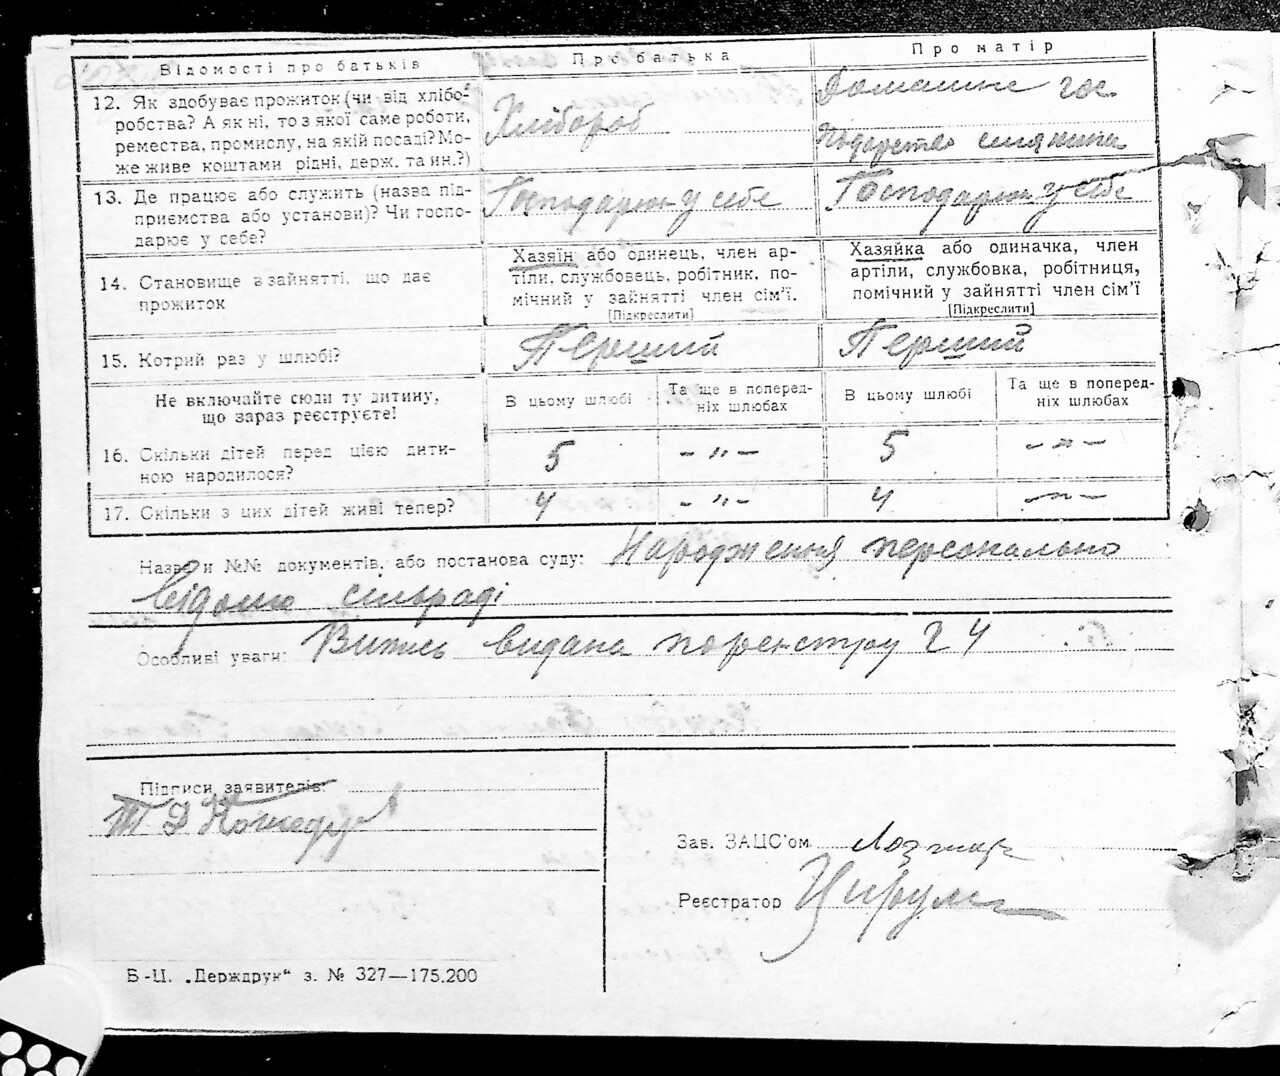 Відомості про батьків Про батька Про матір
12. Як здобуває прожиток (чи від хлібо-
робства? А як ні, то з якої саме роботи,
ремества, промислу, на якій посаді? Мо-
же живе коштами рідні, держ. та ин.?)
Хлібороб
Домашнє гос
подарство селянина
13. Де працює або служить (назва під-
приємства або установи)? Чи госпо-
дарює у себе?
Господарює у себе
Господарює у себе
14. Становище в зайнятті, що дає
прожиток
Хазяїн або одинець, член ар-
тіли, службовець, робітник, по-
мічний у зайнятті член сім'ї.
[Підкреслити]
Хазяйка або одиначка, член
артіли, службовка, робітниця,
помічний у зайнятті член сім'ї
[Підкреслити]
15. Котрий раз у шлюбі?
Перший
Перший
Не включайте сюди ту дитину,
що зараз реєструєте!
В цьому шлюбі
Та ще в поперед-
ніх шлюбах
В цьому шлюбі
Та ще в поперед-
ніх шлюбах
16. Скільки дітей перед цією дити-
ною народилося?
5 – „ – 5 – „ –
17. Скільки з цих дітей живі тепер? 4 – „ – 4 – „ –
Назви й №№ документів, або постанова суду: Народження персонально
відомо сільраді
Особливі уваги: Випись видана по реєстру
Підписи заявителів:
Зав. ЗАЦС'ом
Реєстратор
Б-Ц. „Держдрук“ з. № 327—175.200